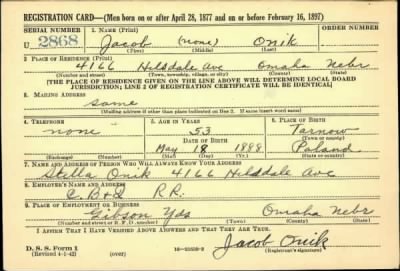 REGISTRATION CARD—(Men born on or after April 28, 1877 and on or before February 16, 1897)
SERIAL NUMBER
1. NAME (Print)
U 2868
Jacob (none) Onik
(First) (Middle) (Last)
2. PLACE OF RESIDENCE (Print)
4166 Hillsdale Ave Omaha Nebr
(Number and street) (Town, township, village, or city) (County) (State)
[THE PLACE OF RESIDENCE GIVEN ON THE LINE ABOVE WILL DETERMINE LOCAL BOARD
JURISDICTION; LINE 2 OF REGISTRATION CERTIFICATE WILL BE IDENTICAL]
3. MAILING ADDRESS
same
[Mailing address if other than place indicated on line 2. If same insert word same]
4. TELEPHONE
5. AGE IN YEARS
6. PLACE OF BIRTH
none
53
Tarnow
DATE OF BIRTH
(Town or county)
May 18 1888
Poland
(Exchange) (Number)
(Mo.) (Day) (Yr.)
(State or country)
7. NAME AND ADDRESS OF PERSON WHO WILL ALWAYS KNOW YOUR ADDRESS
Stella Onik 4166 Hillsdale Ave
8. EMPLOYER'S NAME AND ADDRESS
C. B & Q RR.
9. PLACE OF EMPLOYMENT OR BUSINESS
Gibson Yds Omaha Nebr
(Number and street or R. F. D. number) (Town) (County) (State)
I AFFIRM THAT I HAVE VERIFIED ABOVE ANSWERS AND THAT THEY ARE TRUE.
D. S. S. Form 1
(Revised 4-1-42) (over)
Jacob Onik
(Registrant's signature)